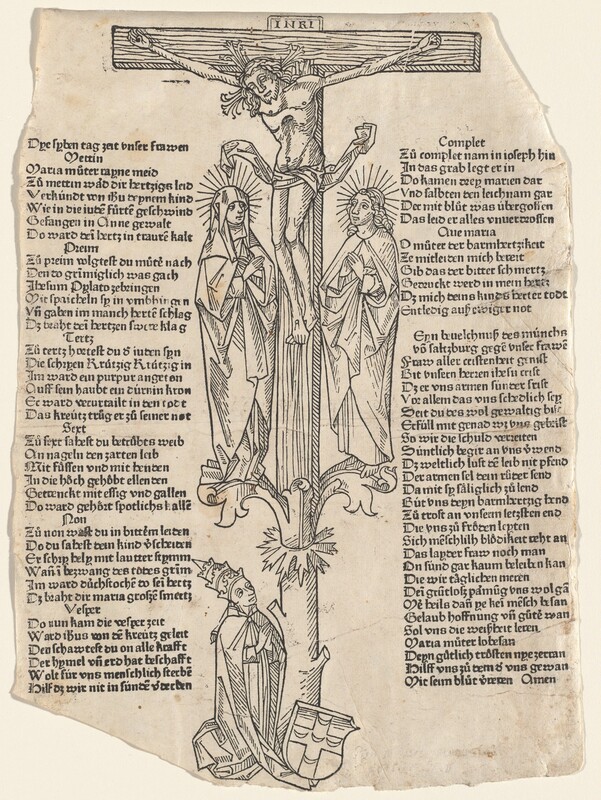 INRI
Dye syben tag zeit vnser frawen
Mettin
Maria můter rayne meid
Zů mettin wad dir hertziges leid
Verkündt von iħu deynem kind
Wie in die iudē fürtē geschwind
Gefangen in Anne gewalt
Do ward dei hertz in traurē kalt
Preim
Zů preim volgtest du můte nach
Den to grimiglich was gach
Ihesum Pylato zebringen
Mit spaicheln sy in vmbhingen
Vn̄ gaben im manch hertē schlag
Dz braht dei hertzen swere klag
Tertz
Zů tertz hortest du d iuden syn
Die schryen Krützig Krützig in
Im ward ein purpur angeton
Auff sein haubt ein dürnin kron
Er ward verurtailt in den tod t
Das kreütz trůg er zů seiner not
Sext
Zů sext sahest du betrůbtes weib
An nageln den zarten leib
Mit füssen vnd mit henden
In die höch gehöbt ellenden
Getrenckt mit essig vnd gallen
Do ward gehört spotlichs kalle
Non
Zů non wast du in bittem leiden
Do du sahest dein kind v̄scheiden
Er schry hely mit lautter stymm
Wan̄ i bezwang des todes grim
Im ward důchstochē do sei hertz
Dz braht dir maria große smertz
Vesper
Do nun kam die vesper zeit
Ward iħus von dē kreütz geleit
Den schawtest du on alle krafft
Der hymel vn̄ erd hat beschafft
Wolt für vns menschlich sterbē
Hilf dz wir nit in sündē v̄derben
Complet
Zů complet nam in ioseph hin
In das grab legt er in
Do kamen drey marien dar
Vnd salbten den leichnam gar
Der mit blůt was übergossen
Das leid er alles vnuerdrossen
Aue maria
O můter der barmhertzikeit
Ze mitleiden mich bereit
Gib das der bitter schmertz
Getruckt werd in mein hertz
Dz mich deins kinds herter todt
Entledig auß ewiger not
Eyn beuelchnuß des münchs
vō saltzburg gegē vnser frawē
Fraw aller cristenheit genist
Bit vnsern herren ihesu crist
Dz er vns armen sünder frist
Vor allem das vns schedlich sey
Seit du des wol gewaltig bist
Erfüll mit genad wz vns gebrist
So wir die schuld verreiten
Süntlich begir an vns v̄wend
Dz weltlich lust dē leib nit pfend
Der armen sel dein růter send
Da mit sy säliglich zů lend
Büt vns deyn barmhertzig hend
Zů trost an vnserm letzsten end
Die vns zů fröden leyten
Sich menschlich blödikeit zeht an
Das layder fraw noch man
On sünd gar kaum beleiben kan
Die wir täglichen meren
Dei grütloß pāmůg vns wol gā
Mē heils dan̄ ye kei mēsch besan
Gelaub hoffnung vn̄ gůtē wan
Sol vns die weißheit leren
Maria můter lobesan
Deyn gütlich trösten nye zerran
Hilff vns zů dem d vns gewan
Mit seim blůt v̄reren Amen